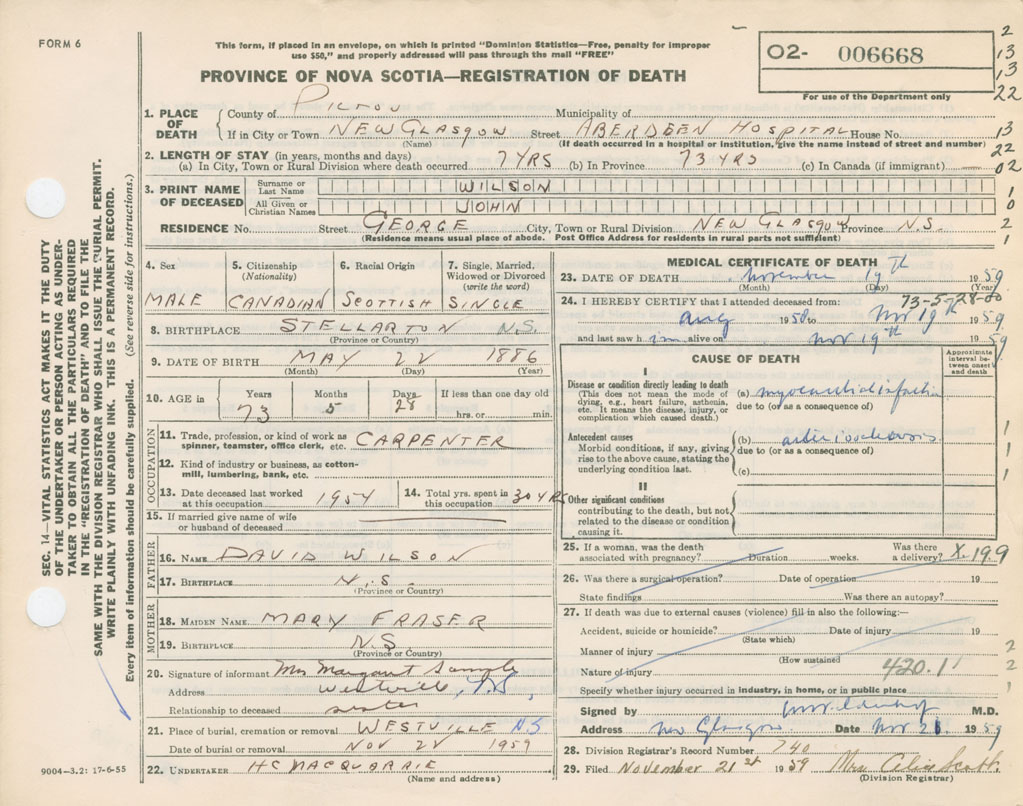 FORM 6
This form, if placed in an envelope, on which is printed "Dominion Statistics—Free, penalty for improper
use $50," and properly addressed will pass through the mail "FREE"
PROVINCE OF NOVA SCOTIA—REGISTRATION OF DEATH
O2- 006668
For use of the Department only
2
13
13
22
13
22
02
1
0
2
1
SEC. 14—VITAL STATISTICS ACT MAKES IT THE DUTY
OF THE UNDERTAKER OR PERSON ACTING AS UNDER-
TAKER TO OBTAIN ALL THE PARTICULARS REQUIRED
IN THE "REGISTRATION OF DEATH" AND TO FILE THE
SAME WITH THE DIVISION REGISTRAR WHO SHALL ISSUE THE BURIAL PERMIT.
WRITE PLAINLY WITH UNFADING INK. THIS IS A PERMANENT RECORD.
Every item of information should be carefully supplied. (See reverse side for instructions.)
1. PLACE OF DEATH
County of PICTOU Municipality of
If in City or Town NEW GLASGOW Street ABERDEEN HOSPITAL House No.
(Name) (If death occurred in a hospital or institution, give the name instead of street and number)
2. LENGTH OF STAY (in years, months and days)
(a) In City, Town or Rural Division where death occurred 7 YRS (b) In Province 73 YRS (c) In Canada (if immigrant)
3. PRINT NAME OF DECEASED
Surname or Last Name WILSON
All Given or Christian Names JOHN
RESIDENCE No. Street GEORGE City, Town or Rural Division NEW GLASGOW Province N.S.
(Residence means usual place of abode. Post Office Address for residents in rural parts not sufficient)
4. Sex
MALE
5. Citizenship (Nationality)
CANADIAN
6. Racial Origin
SCOTTISH
7. Single, Married, Widowed or Divorced (write the word)
SINGLE
8. BIRTHPLACE STELLARTON N.S.
(Province or Country)
9. DATE OF BIRTH MAY 22 1886
(Month) (Day) (Year)
10. AGE in
Years Months Days If less than one day old
73 5 28 hrs. or min.
OCCUPATION
11. Trade, profession, or kind of work as
spinner, teamster, office clerk, etc. CARPENTER
12. Kind of industry or business, as cotton-
mill, lumbering, bank, etc.
13. Date deceased last worked
at this occupation 1954
14. Total yrs. spent in
this occupation 30 YRS
15. If married give name of wife
or husband of deceased
FATHER
16. NAME DAVID WILSON
17. BIRTHPLACE N.S.
(Province or Country)
MOTHER
18. MAIDEN NAME MARY FRASER
19. BIRTHPLACE N.S
(Province or Country)
20. Signature of informant Mrs Margaret Semple
Address Westville, N.S,
Relationship to deceased sister
21. Place of burial, cremation or removal WESTVILLE N.S
Date of burial or removal NOV 22 1959
22. UNDERTAKER HC MACQUARRIE
(Name and address)
9004—3.2: 17-6-55
MEDICAL CERTIFICATE OF DEATH
23. DATE OF DEATH November 19th 1959
(Month) (Day) (Year)
24. I HEREBY CERTIFY that I attended deceased from:
73-5-28-00
Aug 1958 to Nov 19th 1959
and last saw him alive on Nov 19th 1959
CAUSE OF DEATH
Approximate interval between onset and death
I
Disease or condition directly leading to death
(This does not mean the mode of
dying, e.g., heart failure, asthenia,
etc. It means the disease, injury, or
complication which caused death.)
(a) myocardial infarction
due to (or as a consequence of)
Antecedent causes
Morbid conditions, if any, giving
rise to the above cause, stating the
underlying condition last.
(b) arteriosclerosis
due to (or as a consequence of)
(c)
1
1
1
II
Other significant conditions
contributing to the death, but not
related to the disease or condition
causing it.
25. If a woman, was the death
associated with pregnancy? Duration weeks. Was there
a delivery? X-19.9
26. Was there a surgical operation? Date of operation 19
State findings Was there an autopsy?
27. If death was due to external causes (violence) fill in also the following:—
Accident, suicide or homicide? Date of injury 19
(State which)
Manner of injury
(How sustained)
Nature of injury 420.1
2
2
1
Specify whether injury occurred in industry, in home, or in public place
Signed by M.D.
Address New Glasgow Date Nov 21 1959
28. Division Registrar's Record Number 740
29. Filed November 21st 1959 Mrs. Alice Scott
(Division Registrar)